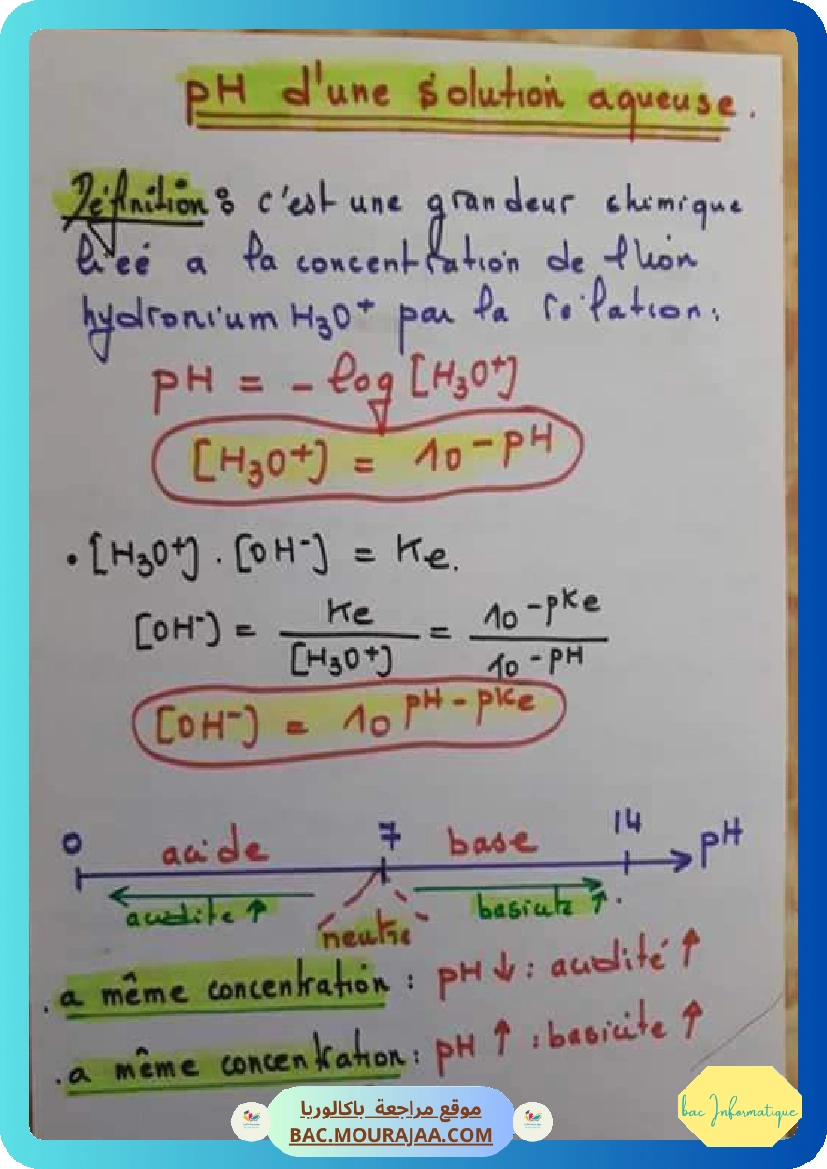 pH d'une solution aqueuse.
Définition : c'est une grandeur chimique
liéé a la concentration de l'ion
hydronium H3O+ par la relation :
pH = - log [H3O+]
[H3O+] = 10^-pH
• [H3O+] . [OH-] = Ke.
[OH-] = Ke / [H3O+] = 10^-pKe / 10^-pH
[OH-] = 10^pH - pKe
0 acide 7 base 14 pH
acidite ↑ basicite ↑.
neutre
. a même concentration : pH ↓ : acidité ↑
. a même concentration : pH ↑ : basicite ↑
موقع مراجعة باكالوريا
BAC.MOURAJAA.COM
bac Informatique